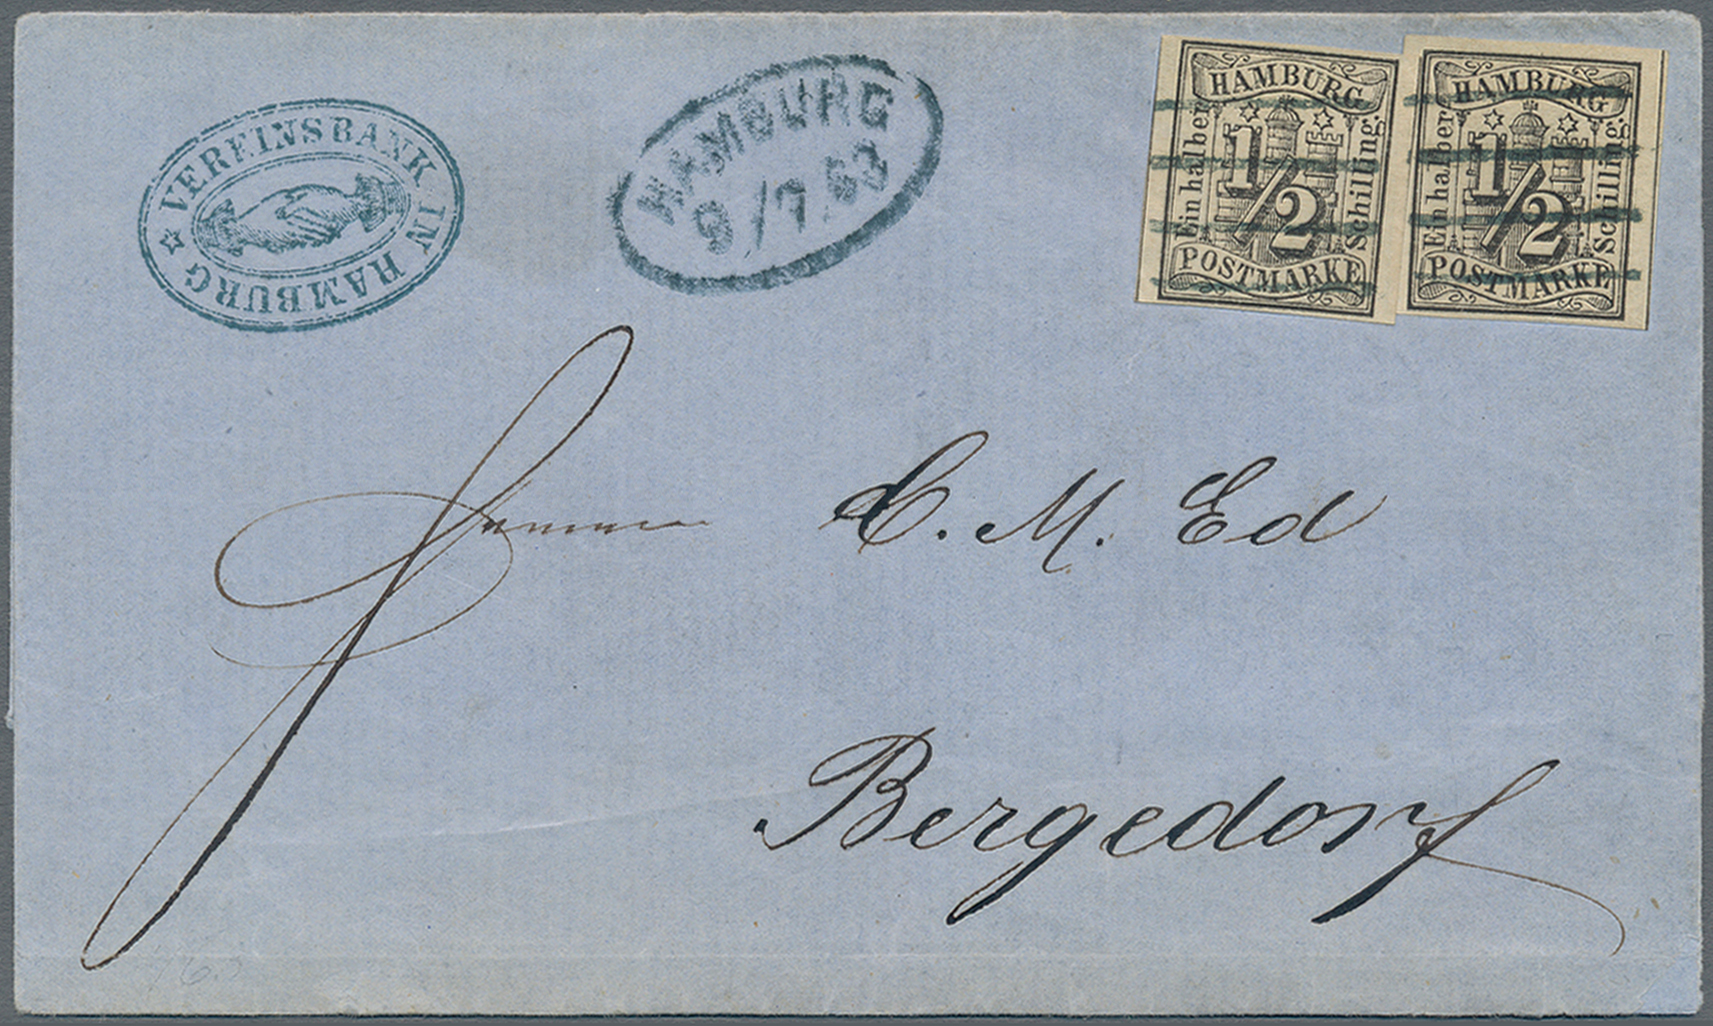 VEREINSBANK IN HAMBURG
HAMBURG
9/7.63
HAMBURG
Ein halber
1/2
Schilling.
POSTMARKE
HAMBURG
Ein halber
1/2
Schilling.
POSTMARKE
C. M. Ed
Bergedorf